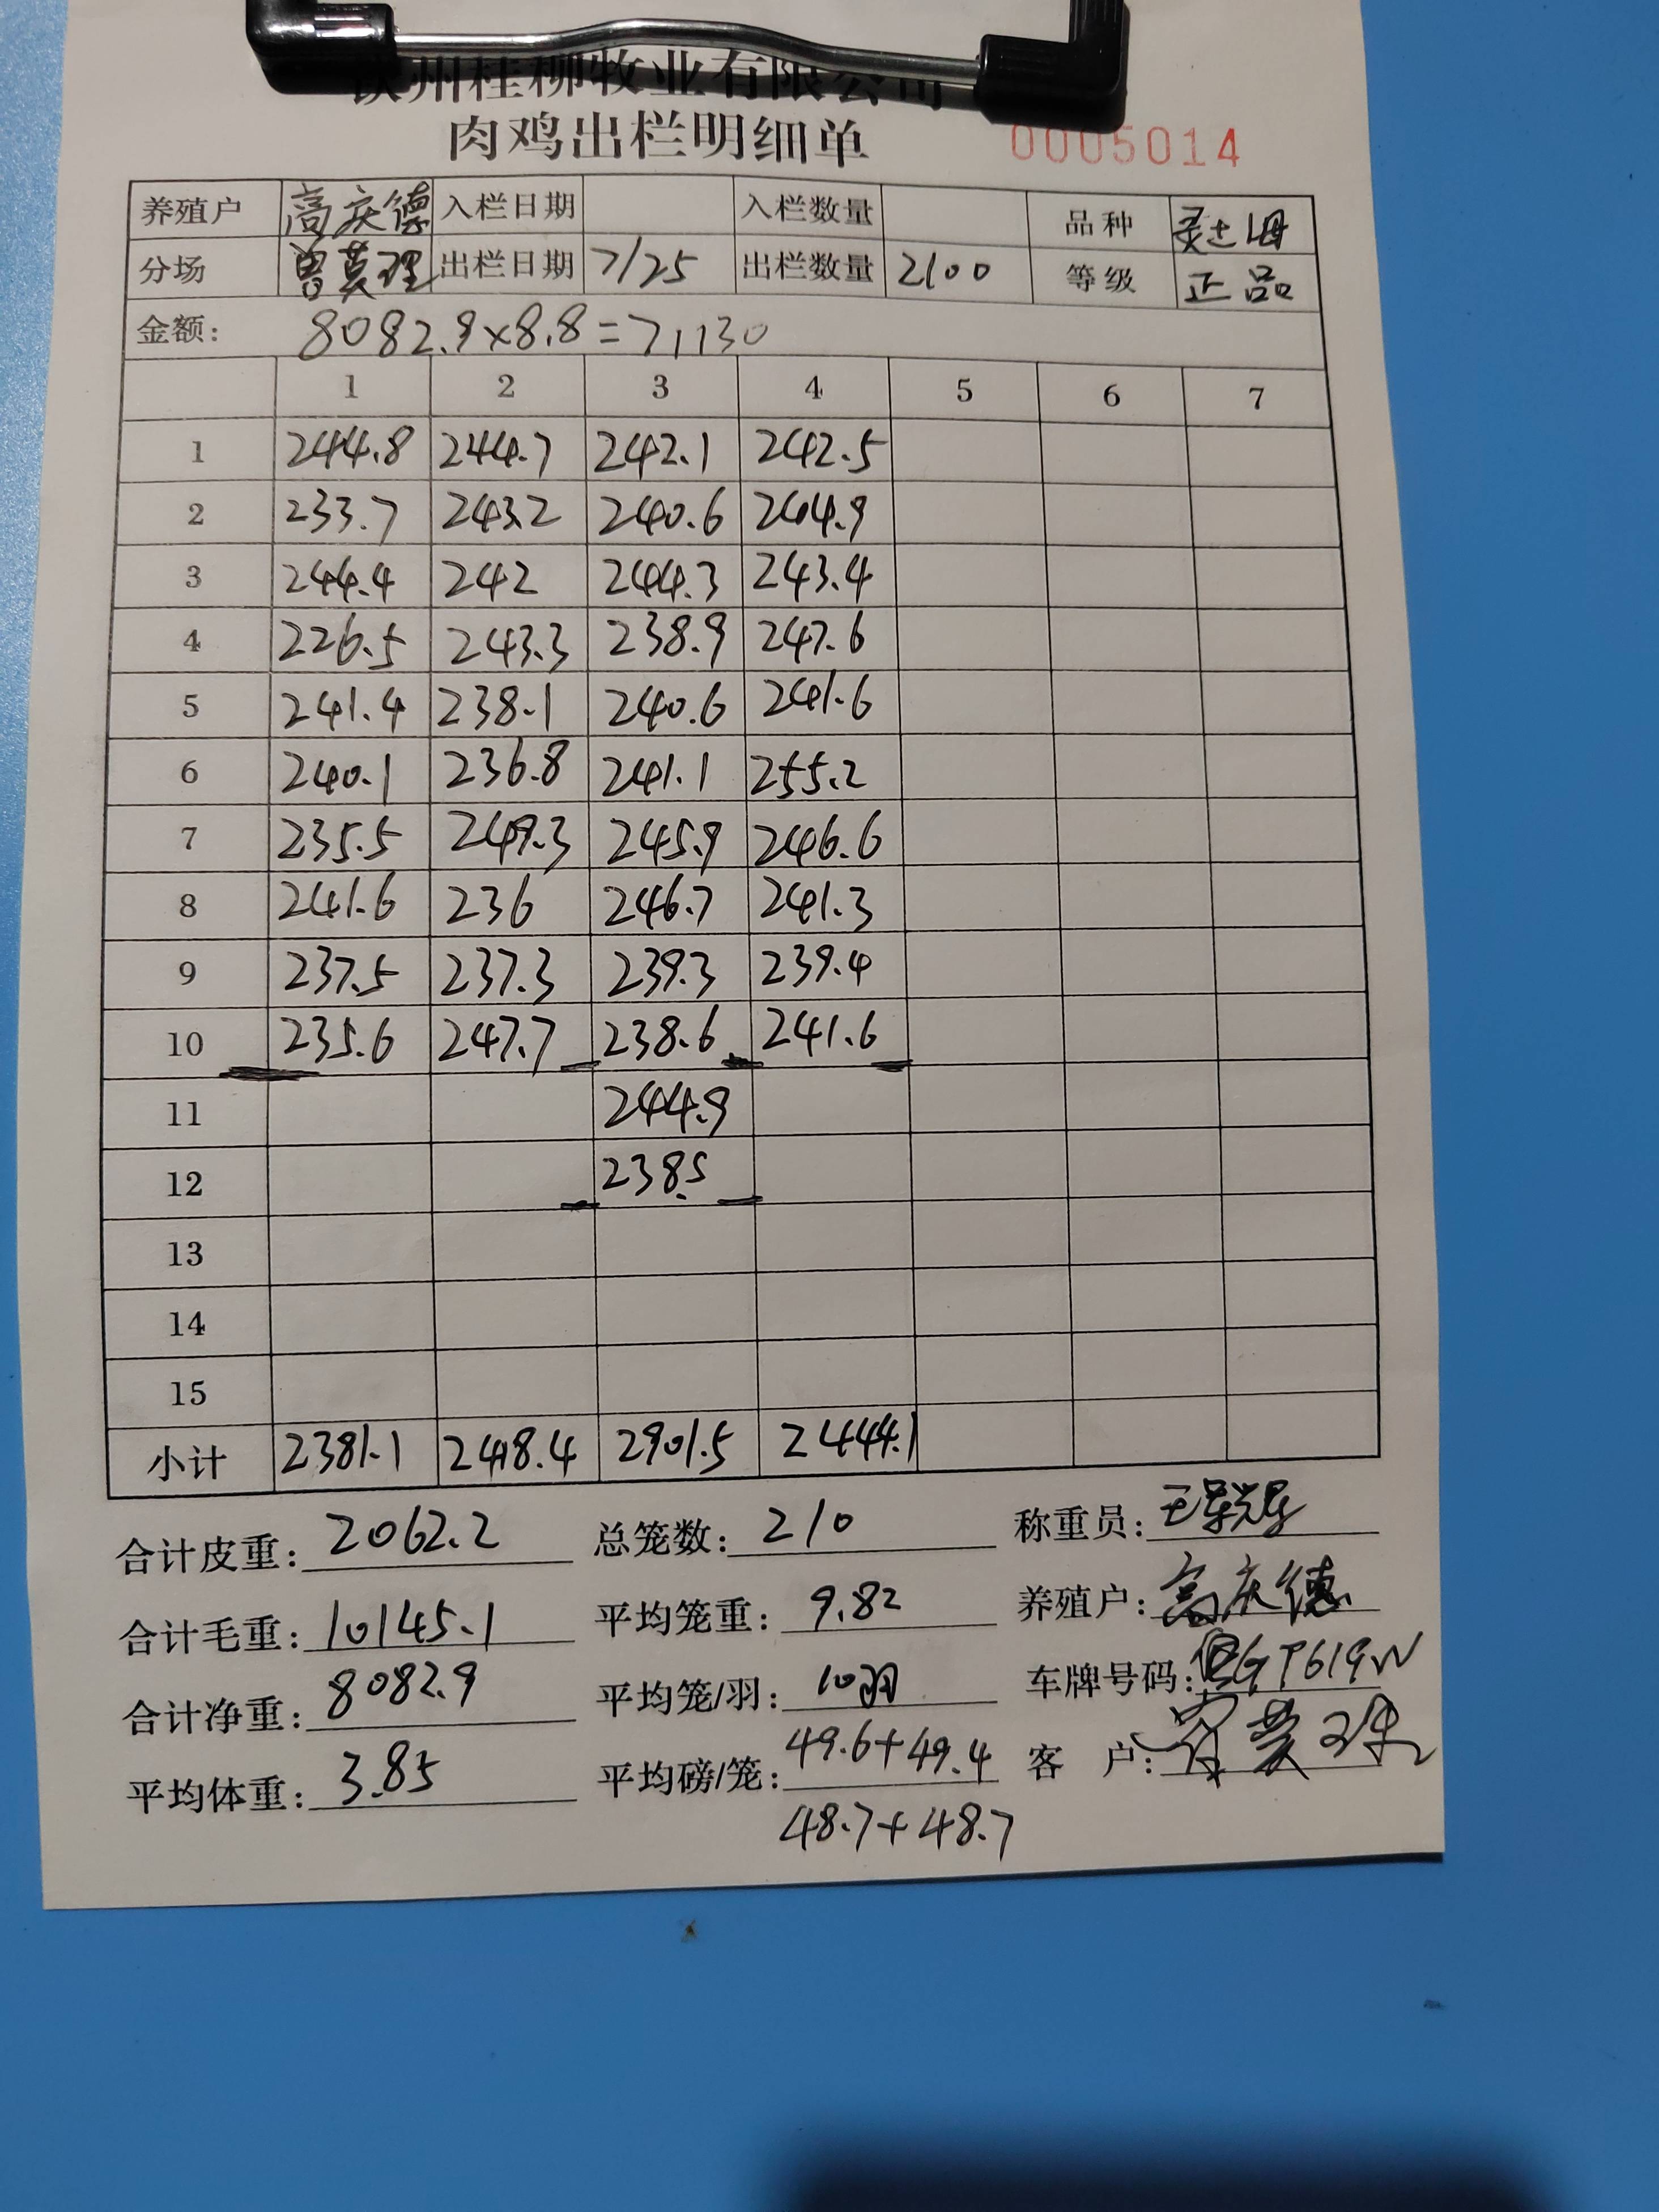 钦州桂柳牧业有限公司
肉鸡出栏明细单 0005014
养殖户 高庆德 入栏日期 入栏数量 品种 灵士母
分场 曾莫理 出栏日期 7/25 出栏数量 2100 等级 正品
金额: 8082.9×8.8=71130
1 2 3 4 5 6 7
1 244.8 244.7 242.1 242.5
2 233.7 243.2 240.6 244.9
3 244.4 242 244.3 243.4
4 226.5 243.3 238.9 247.6
5 241.4 238.1 240.6 241.6
6 240.1 236.8 241.1 255.2
7 235.5 249.3 245.9 246.6
8 241.6 236 246.7 241.3
9 237.5 237.3 239.3 239.4
10 235.6 247.7 238.6 241.6
11 244.9
12 238.5
13
14
15
小计 2381.1 2418.4 2901.5 2444.1
合计皮重: 2062.2 总笼数: 210 称重员:
合计毛重: 10145.1 平均笼重: 9.82 养殖户: 高庆德
合计净重: 8082.9 平均笼/羽: 10羽 车牌号码:
平均体重: 3.85 平均磅/笼: 49.6+49.4 客 户:
48.7+48.7